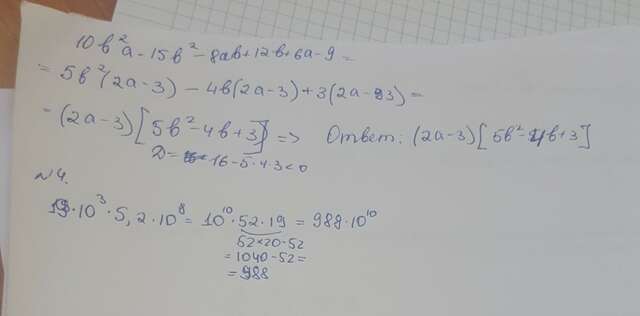 10b²a-15b²-8ab+12b+6a-9=
=5b²(2a-3)-4b(2a-3)+3(2a-3)=
-(2a-3)[5b²-4b+3]=> Ответ: (2a-3)[5b²-4b+3]
D= 16-5·4·3<0
N4.
19·10³·5,2·10⁸=10¹⁰·52·19=988·10¹⁰
52×20-52
=1040-52=
=988